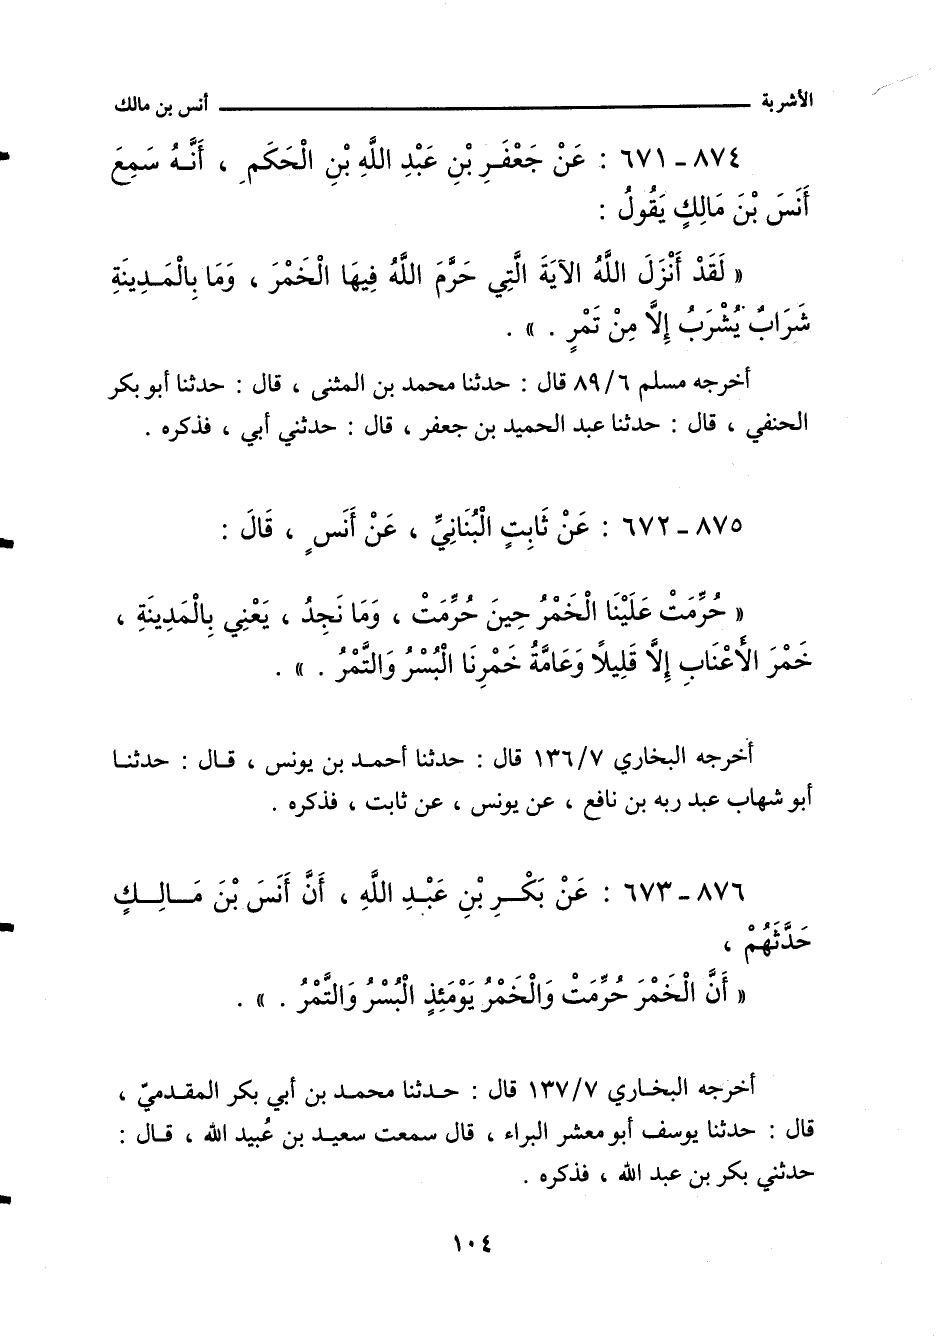 الأشربة ــــــــــ أنس بن مالك
٨٧٤ ـ ٦٧١ : عَنْ جَعْفَرِ بْنِ عَبْدِ اللَّهِ بْنِ الْحَكَمِ ، أَنَّهُ سَمِعَ
أَنَسَ بْنَ مَالِكٍ يَقُولُ :
« لَقَدْ أَنْزَلَ اللَّهُ الآيَةَ الَّتِي حَرَّمَ اللَّهُ فِيهَا الْخَمْرَ ، وَمَا بِالْمَدِينَةِ
شَرَابٌ يُشْرَبُ إِلَّا مِنْ تَمْرٍ . » .
أخرجه مسلم ٨٩/٦ قال : حدثنا محمد بن المثنى ، قال : حدثنا أبو بكر
الحنفي ، قال : حدثنا عبد الحميد بن جعفر ، قال : حدثني أبي ، فذكره .
٨٧٥ ـ ٦٧٢ : عَنْ ثَابِتٍ الْبُنَانِيِّ ، عَنْ أَنَسٍ ، قَالَ :
« حُرِّمَتْ عَلَيْنَا الْخَمْرُ حِينَ حُرِّمَتْ ، وَمَا نَجِدُ ، يَعْنِي بِالْمَدِينَةِ ،
خَمْرَ الأَعْنَابِ إِلَّا قَلِيلًا وَعَامَّةُ خَمْرِنَا الْبُسْرُ وَالتَّمْرُ . » .
أخرجه البخاري ١٣٦/٧ قال : حدثنا أحمد بن يونس ، قال : حدثنا
أبو شهاب عبد ربه بن نافع ، عن يونس ، عن ثابت ، فذكره .
٨٧٦ ـ ٦٧٣ : عَنْ بَكْرِ بْنِ عَبْدِ اللَّهِ ، أَنَّ أَنَسَ بْنَ مَالِكٍ
حَدَّثَهُمْ ،
« أَنَّ الْخَمْرَ حُرِّمَتْ وَالْخَمْرُ يَوْمَئِذٍ الْبُسْرُ وَالتَّمْرُ . » .
أخرجه البخاري ١٣٧/٧ قال : حدثنا محمد بن أبي بكر المقدميّ ،
قال : حدثنا يوسف أبو معشر البراء ، قال سمعت سعيد بن عُبيد الله ، قال :
حدثني بكر بن عبد الله ، فذكره .
١٠٤